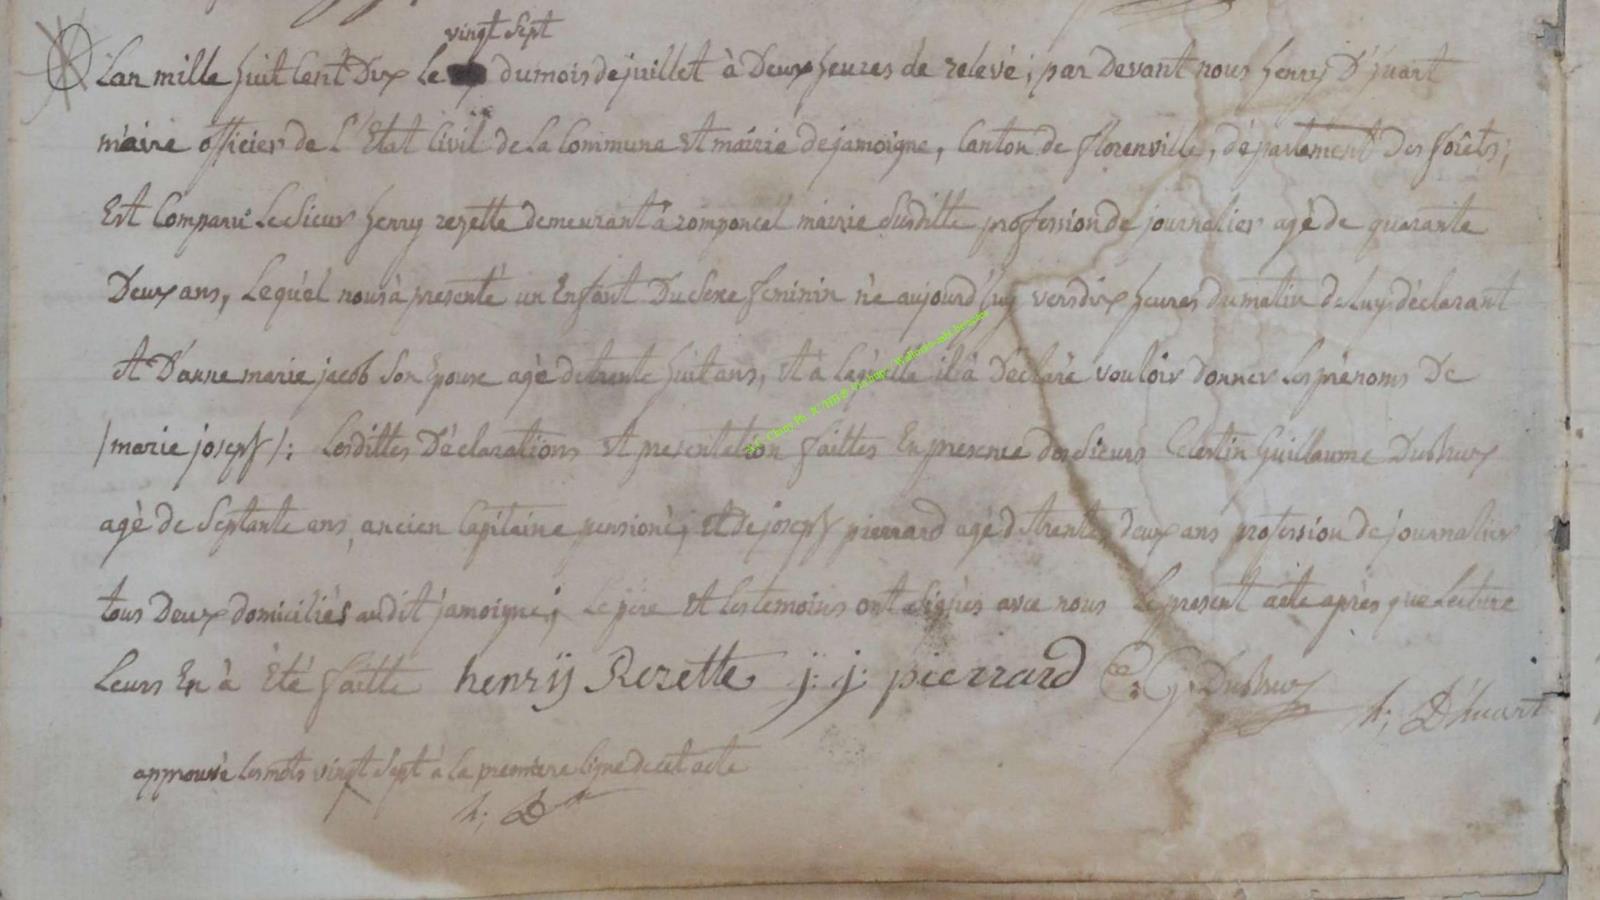 vingt sept
Lan mille huit Cent Dix Le du mois de juillet à Deux heures de relevé; par Devant nous henry D'huart
maire officier de L'Etat Civil de La Commune et mairie de jamoigne, Canton de florenville, département Des forêts;
Est Comparu Le Sieur henry rezette demeurant à romponcel mairie Susditte profession de journalier agé de quarante
Deux ans, Lequel nous à presenté un Enfant Du Sexe feminin né aujourd'huy vers dix heures du matin de Luy déclarant
et D'anne marie jacob Son Epouse agé de trente huit ans, et à Laquelle il à Déclaré vouloir donner Les prénoms De
/ marie joseph /: Lesdittes Déclarations et presentation faittes En presence des Sieurs Celestin Guillaume Dubrux
agé de Septante ans, ancien Capitaine pensioné, et de joseph pierrard agé de trente deux ans profession de journalier
tous Deux domiciliés audit jamoigne; Le père et les temoins ont Signés avec nous Le present acte après que Lecture
Leurs En à Eté faitte henrÿ Rezette j: j: pierrard C: G: Dubrux
h; D'huart
approuvé les mots vingt Sept à la premiere ligne de cet acte
h; D